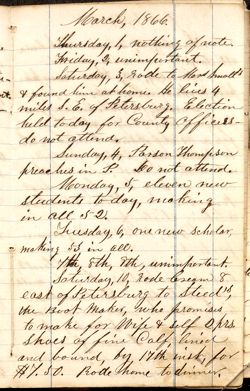 March, 1866.
Thursday, 1, nothing of note.
Friday, 2, unimportant.
Saturday, 3, Rode to
& found him at home. He lives 4
miles S. E. of Petersburg. Election
held to day for County Officers-
do not attend.
Sunday, 4, Parson Thompson
preaches in P. Do not attend.
Monday, 5, eleven new
students to day, making
in all 52.
Tuesday, 6, one new scholar,
making 53 in all.
7th 8th, 9th, unimportant.
Saturday, 10, Rode 8
east of Petersburg to Steed's,
the Boot Maker, who promises
to make for Wife & self 2 prs
Shoes of fine Calf, lined
and bound, by 17th inst, for
$7.50. Rode home to dinner.